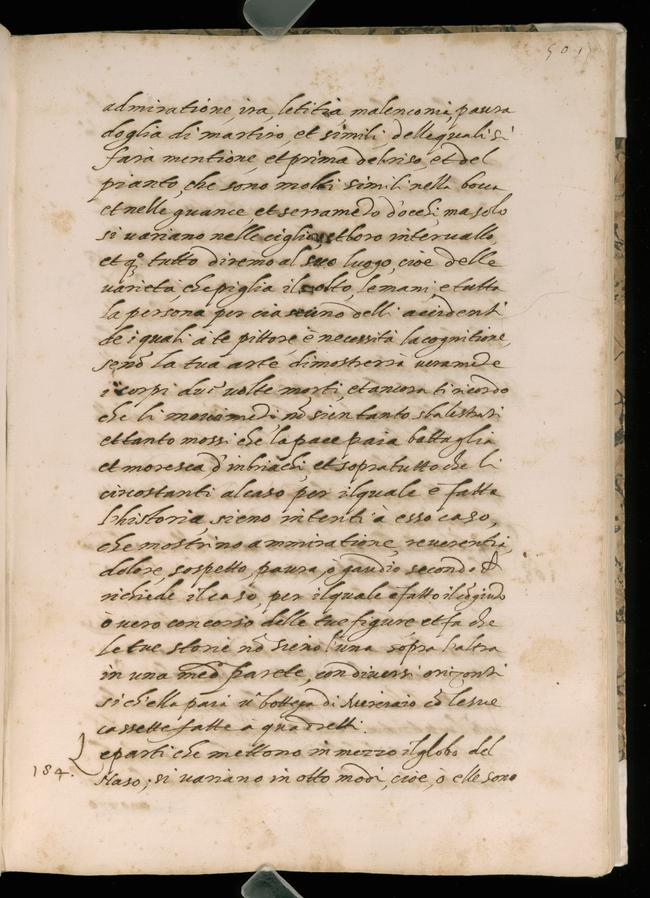 501
admiratione, ira, letitia, malenconia, paura
doglia di martiro, et simili, delle quali si
farà mentione, et prima del riso, et del
pianto, che sono molti simili nella bocca
et nelle guance et serramẽto d'occhi, ma solo
si variano nelle ciglia, et loro intervallo,
et q̃o tutto diremo al suo luogo, cioè delle
varietà, che piglia il volto, le mani, e tutta
la persona per ciascuno delli accidenti
de i quali à te pittore è necessità la cognitione,
se nõ la tua arte dimostrerrà veramẽte
i corpi due volte morti, et ancora ti ricordo
che li movimẽti nõ sien tanto sbalestrati
et tanto mossi che la pace paia battaglia
et moresca d'inbriachi, et sopra tutto che li
circostanti al caso, per il quale è fatta
l'historia, sieno intenti à esso caso,
che mostrino ammiratione, reverentia,
dolore, sospetto, paura, o gaudio secondo
richiede il caso, per il quale è fatto il cõgiũto
ò vero concorso delle tue figure et fa che
le tue storie nõ sieno l'una sopra l'altra
in una med.ª parete, con diversi orizonti
si ch'ella paia ũ bottega di Merciaio cõ le sue
cassette fatte a quadretti.
184. Le parti che mettono in mezzo il globo del
Naso, si variano in otto modi, cioè, ò elle sono